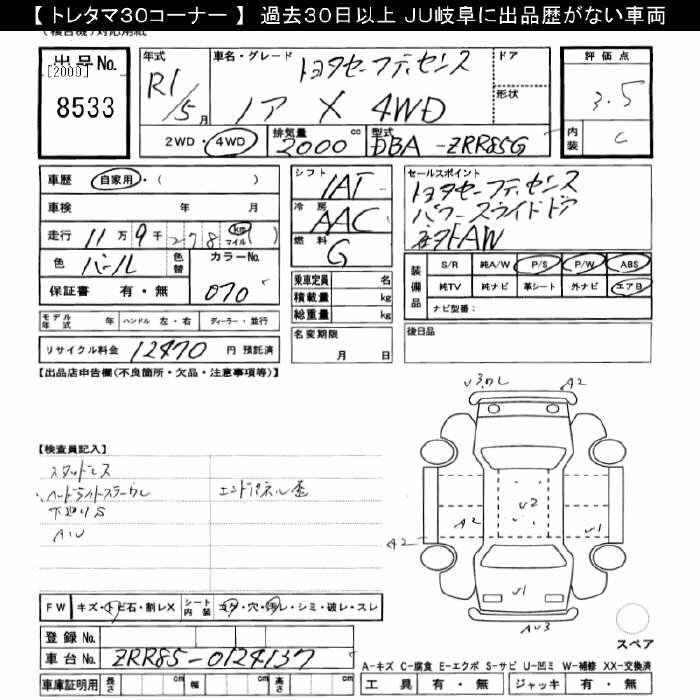 【 トレタマ30コーナー 】 過去30日以上 JU岐阜に出品歴がない車両
(複合名)対応用紙
出品No. 年式 車名・グレード ドア 評価点
[2000] R1/5月 トヨタセーフティセンス 形状 3.5
8533 ノア X 4WD 内装 C
2WD・4WD 排気量 2000 cc 型式 DBA-ZRR85G
車歴 自家用・( ) シフト IAT セールスポイント
車検 年 月 冷房 AAC トヨタセーフティセンス
走行 11万9千278 km マイル ( ) 燃料 G パワースライドドア
色 パール 色替 カラーNo. 070 社外AW
保証書 有・無 乗車定員 名 装備品 S/R 純A/W P/S P/W ABS
積載量 kg 純TV 純ナビ 革シート 外ナビ エアB
総重量 kg ナビ型番:
モデル年式 年 ハンドル 左・右 ディーラー・並行 名変期限 月 日 後日品
リサイクル料金 12470 円 預託済
【出品店申告欄(不良箇所・欠品・注意事項等)】
【検査員記入】
スタッドレス
ヘッドライトスチーラレ エンドパネル歪
下廻りS
AU
V3.ワレ A2
V2
A2 A2 V1
V1
AU3
スペア
FW キズ・トビ石・割レX シート内装 コゲ・穴・汚レ・シミ・破レ・スレ
登録No.
車台No. ZRR85-0124137
車庫証明用 長さ cm 幅 cm 高さ cm
A-キズ C-腐食 E-エクボ S-サビ U-凹ミ W-補修 XX-交換済
工具 有・無 ジャッキ 有・無